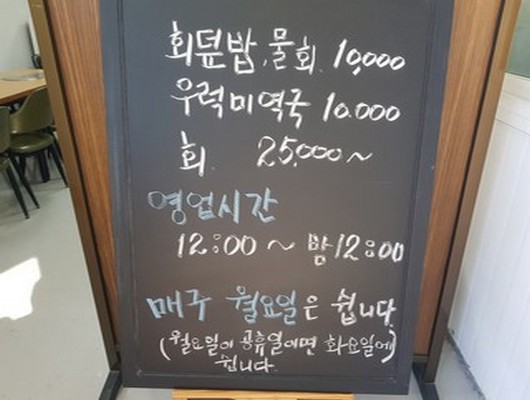 회덮밥, 물회. 10,000
우럭미역국 10.000
회. 25,000~
영업시간
12:00 ~ 밤12:00
매주 월요일은 쉽니다.
(월요일이 공휴열이면 화요일에
쉽니다.